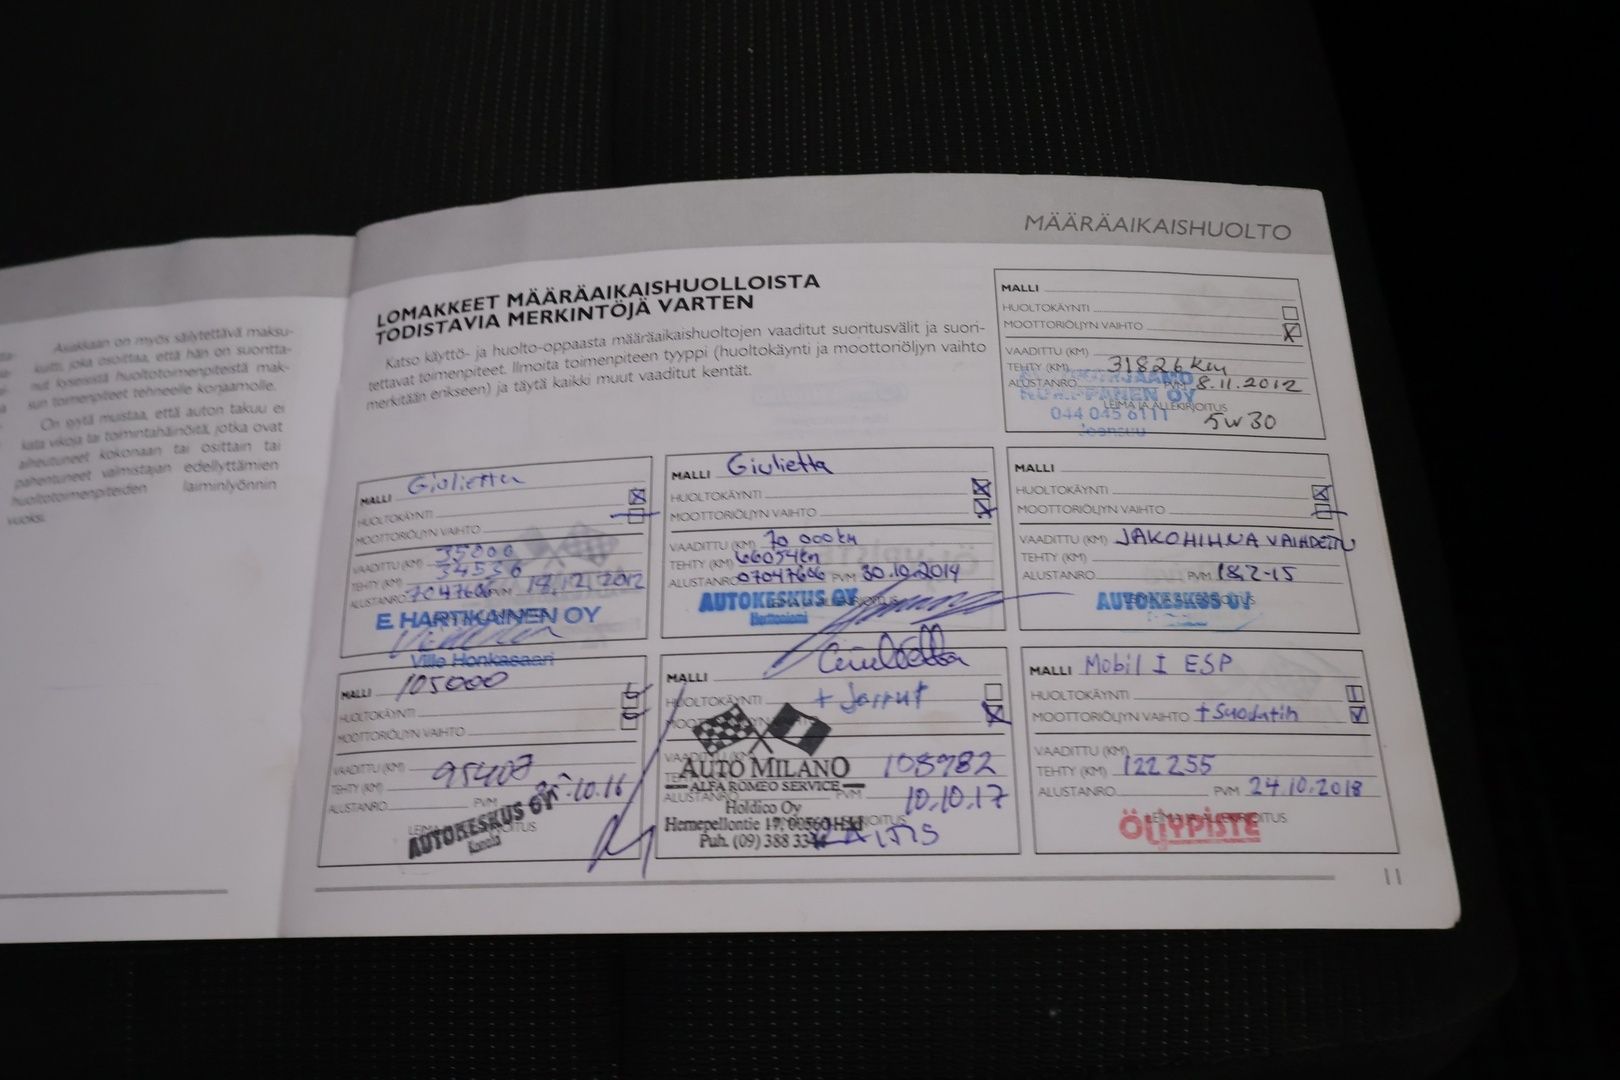 Asiakkaan on myös säilytettävä maksu-
kuitti, joka osoittaa, että hän on suoritta-
nut kyseisistä huoltotoimenpiteistä mak-
sun toimenpiteet tehneelle korjaamolle.
On syytä muistaa, että auton takuu ei
kata vikoja tai toimintahäiriöitä, jotka ovat
aiheutuneet kokonaan tai osittain tai
pahentuneet valmistajan edellyttämien
huoltotoimenpiteiden laiminlyönnin
vuoksi.
MÄÄRÄAIKAISHUOLTO
LOMAKKEET MÄÄRÄAIKAISHUOLLOISTA
TODISTAVIA MERKINTÖJÄ VARTEN
Katso käyttö- ja huolto-oppaasta määräaikaishuoltojen vaaditut suoritusvälit ja suori-
tettavat toimenpiteet. Ilmoita toimenpiteen tyyppi (huoltokäynti ja moottoriöljyn vaihto
merkitään erikseen) ja täytä kaikki muut vaaditut kentät.
MALLI
HUOLTOKÄYNTI
MOOTTORIÖLJYN VAIHTO X
VAADITTU (KM)
TEHTY (KM) 31826 km
ALUSTANRO PVM 8.11.2012
LEIMA JA ALLEKIRJOITUS
044 045 6111
5W30
Joensuu
MALLI Giulietta
HUOLTOKÄYNTI X
MOOTTORIÖLJYN VAIHTO
VAADITTU (KM) 35000
TEHTY (KM) 34536
ALUSTANRO 7047606 PVM 12.12.2012
E. HARTIKAINEN OY
Ville Honkasaari
MALLI Giulietta
HUOLTOKÄYNTI X
MOOTTORIÖLJYN VAIHTO X
VAADITTU (KM) 70 000km
TEHTY (KM) 66054km
ALUSTANRO 07047606 PVM 30.10.2014
AUTOKESKUS OY
Herttoniemi
MALLI
HUOLTOKÄYNTI X
MOOTTORIÖLJYN VAIHTO
VAADITTU (KM) JAKOHIHNA VAIHDETTU
TEHTY (KM)
ALUSTANRO PVM 18.2-15
AUTOKESKUS OY
MALLI 105000
HUOLTOKÄYNTI
MOOTTORIÖLJYN VAIHTO
VAADITTU (KM)
TEHTY (KM) 95407
ALUSTANRO PVM 10.16
LEIMA JA ALLEKIRJOITUS
AUTOKESKUS OY
Konala
MALLI
HUOLTOKÄYNTI + Jarrut
X
AUTO MILANO
108982
ALFA ROMEO SERVICE
ALUSTANRO PVM 10.10.17
Holdico Oy
Hernepellontie 17, 00560 Hki
Puh. (09) 388 334
MALLI Mobil 1 ESP
HUOLTOKÄYNTI
MOOTTORIÖLJYN VAIHTO + Suodatin
VAADITTU (KM)
TEHTY (KM) 122 255
ALUSTANRO PVM 24.10.2018
LEIMA JA ALLEKIRJOITUS
ÖLJYPISTE
11